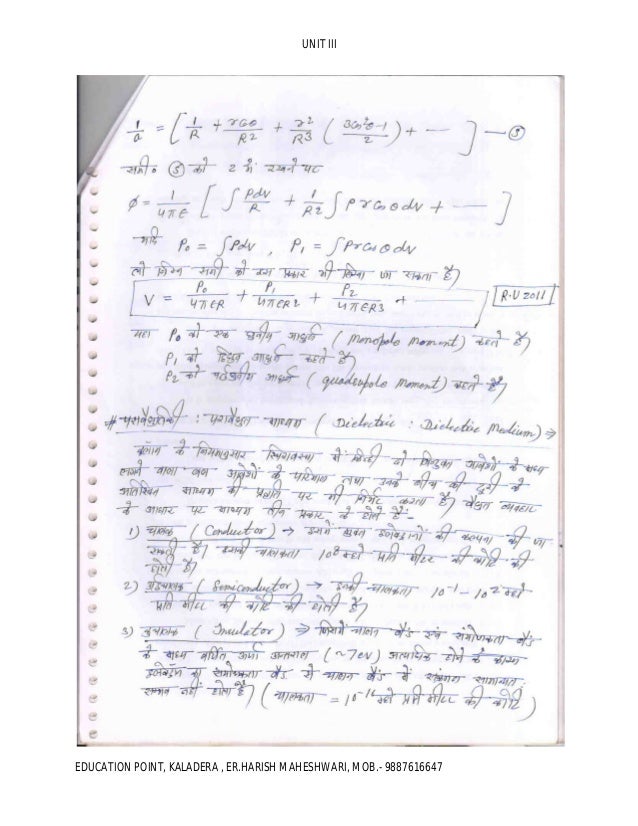 UNIT III
1/a = [ 1/R + rCosθ/R2 + r2/R3 ( 3Cos2θ-1 / 2 ) + --- ] —⑤
समी० ⑤ को 2 में रखने पर
φ = 1/4πε [ ∫ρdv/R + 1/R2 ∫ρrCosθdv + --- ]
यदि P0 = ∫ρdv , P1 = ∫ρrCosθdv
तो निम्न समी को इस प्रकार भी लिखा जा सकता है
V = P0/4πεR + P1/4πεR2 + P2/4πεR3 + --- R.U 2011
यहा P0 को एक ध्रुवीय आघूर्ण ( monopole moment) कहते है
P1 को द्विध्रुव आघूर्ण कहते है
P2 को आघूर्ण ( quadrupole moment) कहते है
# परावैद्युतिकी : परावैद्युत माध्यम ( Dielectric : Dielectric Medium) ⇒
कूलॉम के नियमानुसार स्थिरावस्था में किन्ही दो बिन्दुवत आवेशों के मध्य
लगने वाला बल आवेशों के परिमाण तथा उनके बीच की दूरी के
अतिरिक्त माध्यम की प्रकृति पर भी निर्भर करता है वैद्युत व्यवहार
के आधार पर माध्यम तीन प्रकार के होते है:-
1) चालक ( Conductor) → इनमें मुक्त इलेक्ट्रोनों की कल्पना की जा
सकती है। इनकी चालकता 10 8 म्हो प्रति मीटर की कोटि की
होती है
2) अर्द्धचालक ( Semiconductor) → इनकी चालकता 10-1 - 10 2 म्हो
प्रति मीटर की कोटि की होती है
3) कुचालक ( Insulator) ⇒ जिसमें चालन बैंड एवं संयोजकता बैंड
के मध्य वर्जित ऊर्जा अन्तराल (~7ev) अत्यधिक होने के कारण
इलेक्ट्रॉन का संयोजकता बैंड से चालन बैंड में संक्रमण सामान्यत:
सम्भव नहीं होता है ( चालकता = म्हो प्रति मीटर की कोटि )
EDUCATION POINT, KALADERA , ER.HARISH MAHESHWARI, MOB.- 9887616647